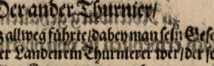 Der ander Thurnier/
allweg führte/ dabey man sein Gese
er Landen im Thurnierer wer/ der se